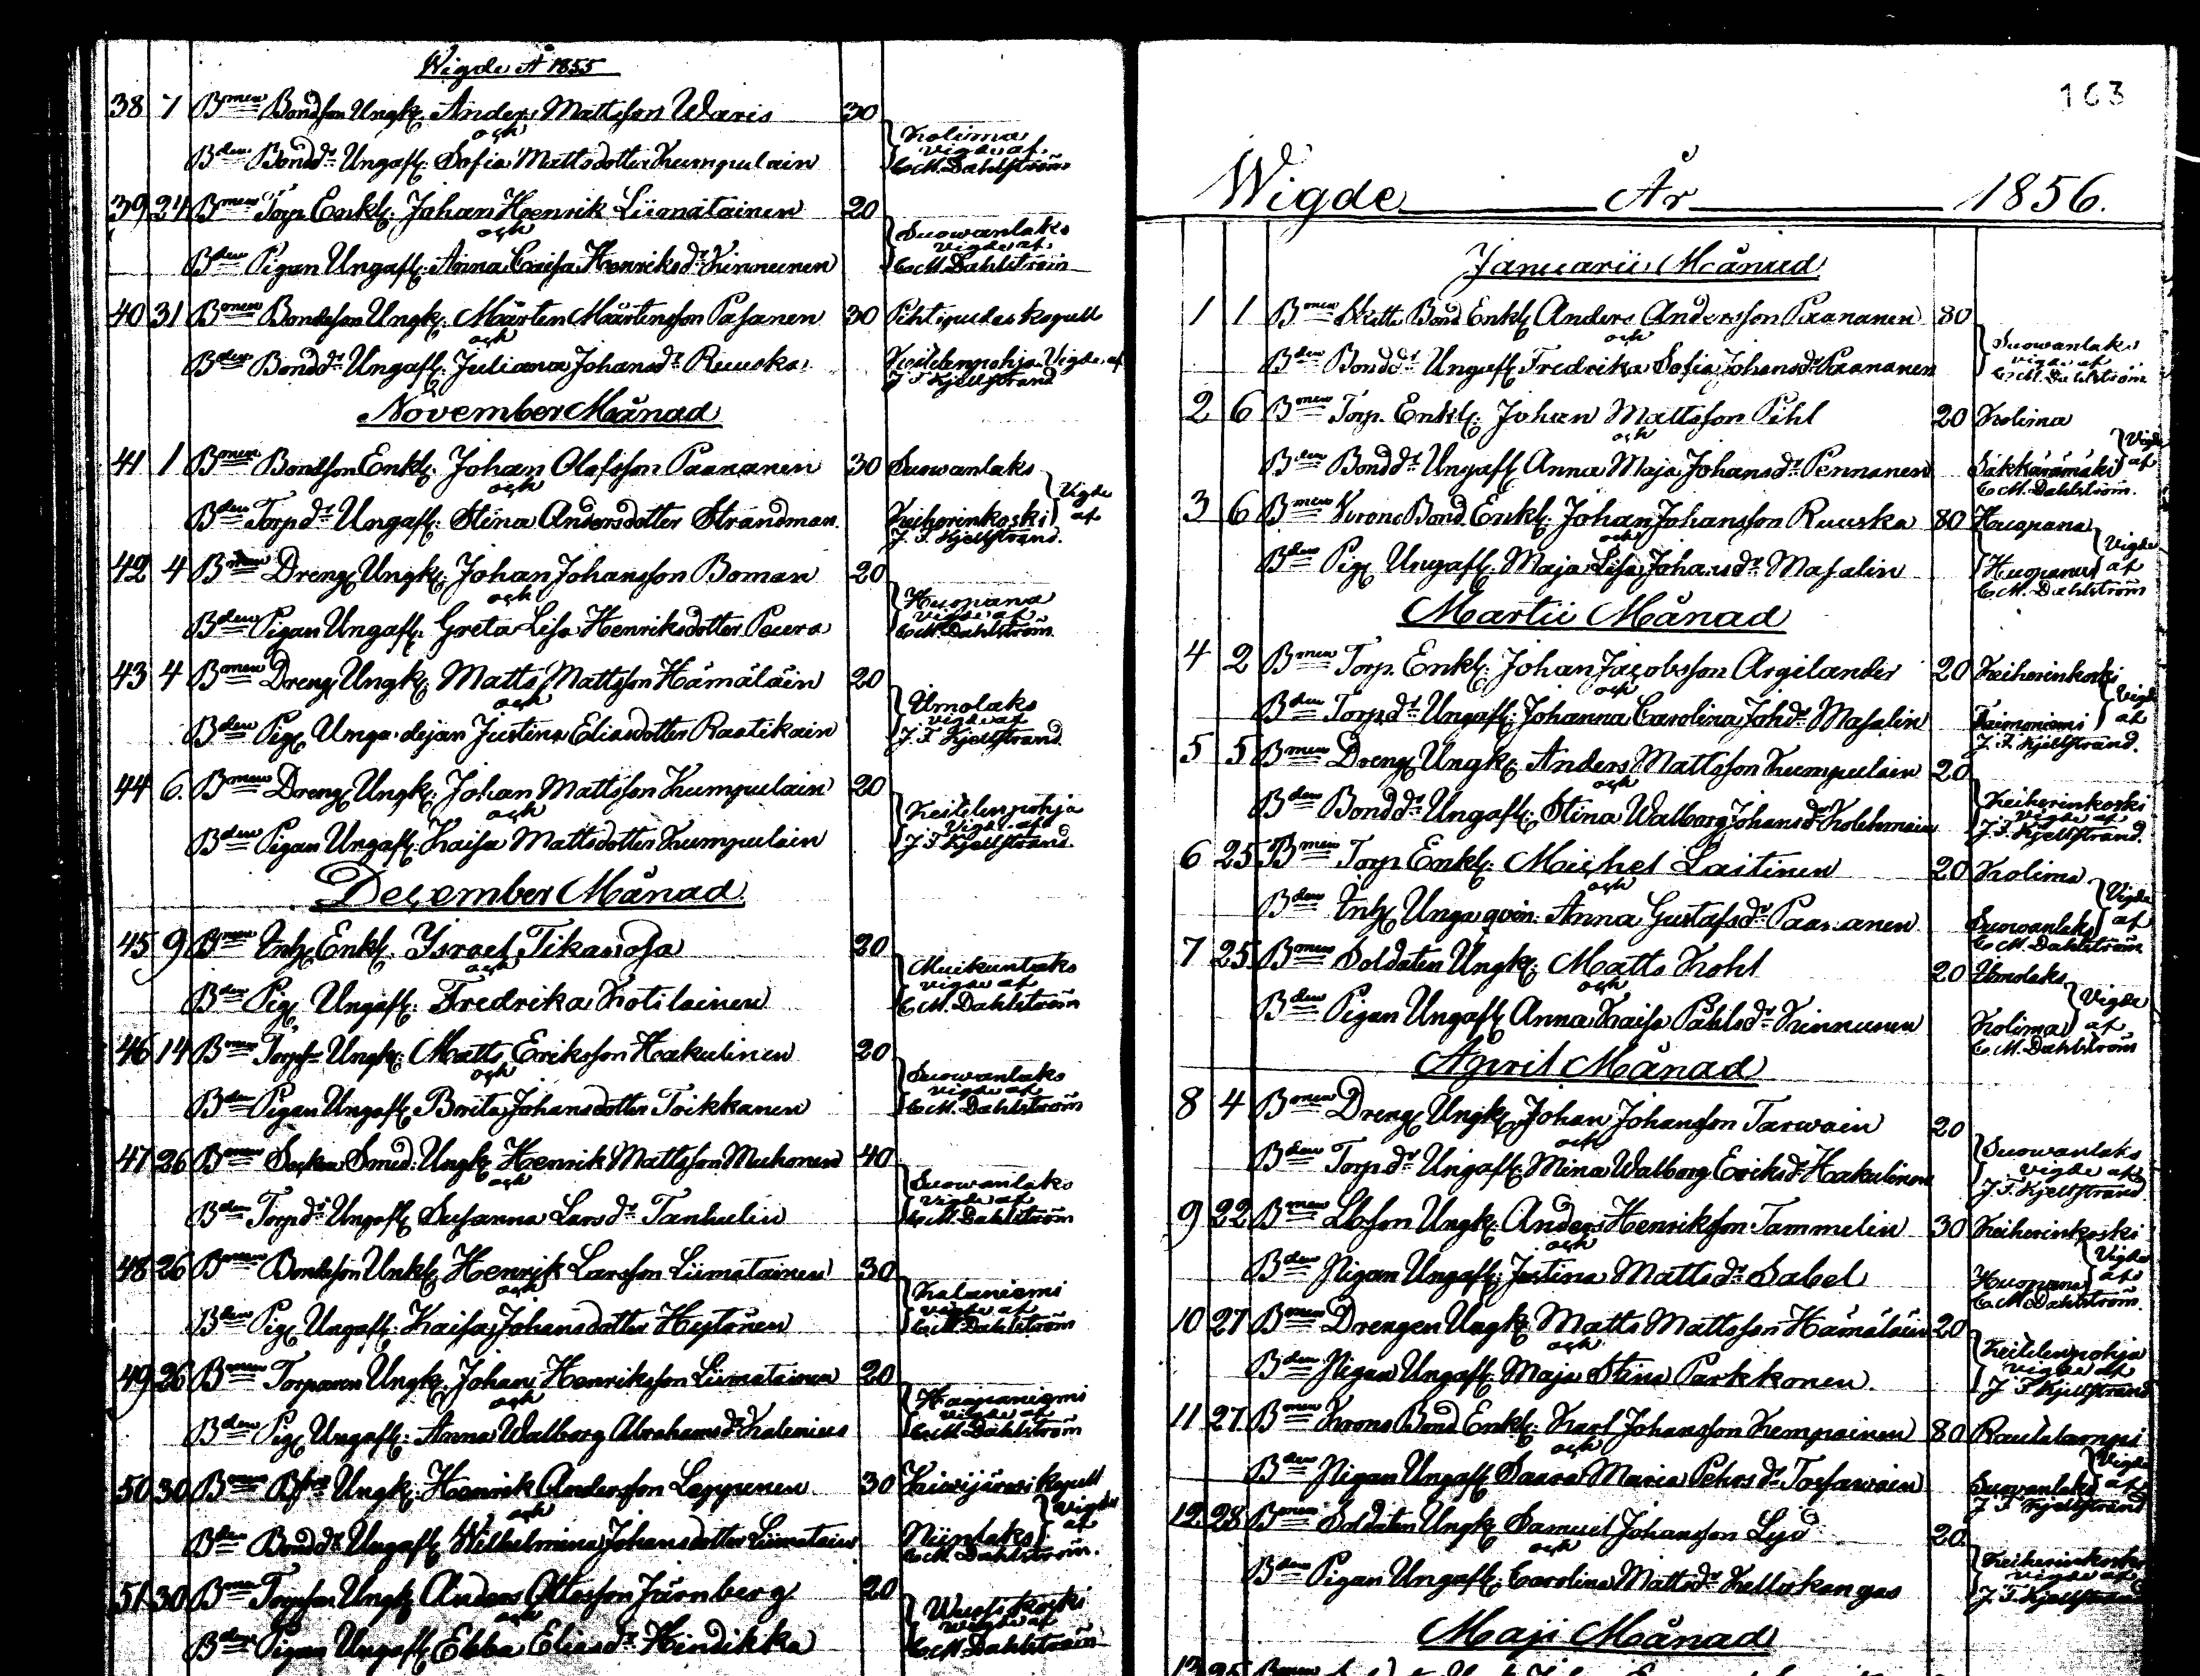 Wigde År 1855
38 7 Bmen Bondson Ungk. Anders Mattsson Waris 30
och
Bden Bondd:r Ungafl: Sofia Mattsdotter Kumpulain
Kolima
vigde af
C. M. Dahlström
39 24 Bmen Torp Enkl: Johan Henrik Liimatainen 20
och
Bden Pigan Ungafl: Anna Caisa Henriksd:r Kinnunen
Suowanlaks
vigde af
C. M. Dahlström
40 31 Bmen Bondeson Ungk: Mårten Mårtensson Pasanen 30 Pihtipudas kapell
och
Bden Bondd:r Ungafl: Juliana Johansd:r Ruuska
Keitelenpohja Vigde af
J. F. Kjellstrand
November Månad
41 1 Bmen Bondson Enkl: Johan Olofsson Paananen 30 Suowanlaks
och
Bden Torpd:r Ungafl: Stina Andersdotter Strandman
Keiherinkoski Vigde af
J. F. Kjellstrand.
42 4 Bmen Dreng Ungk: Johan Johansson Boman 20
och
Bden Pigan Ungafl: Greta Lisa Henriksdotter Peura
Huopana
vigde af
C. M. Dahlström
43 4 Bmen Dreng Ungk: Matts Mattsson Hämäläin 20
och
Bden Pig Unga dejan Justina Eliasdotter Raatikain
Umolaks
vigde af
J. F. Kjellstrand
44 6. Bmen Dreng Ungk: Johan Mattsson Kumpulain 20
och
Bden Pigan Ungafl: Kaisa Mattsdotter Kumpulain
Keitelenpohja
Vigde af
J. F. Kjellstrand
December Månad
45 9 Bmen Inh Enkl: Israel Tikanoja 20
och
Bden Pig Ungafl: Fredrika Kotilainen
Muikunlaks
vigde af
C. M. Dahlström
46 14 Bmen Torps:n Ungk: Matts Eriksson Hakulinen 20
och
Bden Pigan Ungafl: Brita Johansdotter Toikkanen
Suowanlaks
vigde af
C. M. Dahlström
47 26 Bmen Socken Smed: Ungk Henrik Mattsson Muhonen 40
och
Bden Torpd:r Ungafl Susanna Larsd:r Tanhulin
Suowanlaks
vigde af
C. M. Dahlström
48 26 Bmen Bondeson Unkk Henrik Larsson Liimatainen 30
och
Bden Pig Ungafl: Kaisa Johansdotter Hytönen
Kalaniemi
vigde af
C. M. Dahlström
49 26 Bmen Torparen Ungk. Johan Henriksson Liimatainen 20
och
Bden Pig Ungafl: Anna Walborg Abrahamsd:r Kalenius
Haapaniemi
vigde af
C. M. Dahlström
50 30 Bmen Ungk: Henrik Andersson Leppenen 30 Kiwijärwi kapell
och
Bden Bondd:r Ungafl: Wilhelmina Johansdotter Liimatain
Niinilaks Vigde af
C. M. Dahlström.
51 30 Bmen Torpson Ungk Anders Ottosson Järnberg 20
och
Bden Pigan Ungafl Ebba Eliasd:r Hindikka
Wuosikoski
vigde af
C. M. Dahlström
163
Wigde År 1856.
Januarii Månad
1 1 Bmen Skatte Bond Enkl Anders Andersson Paananen 80
och
Bden Bondd:r Ungafl Fredrika Sofia Johansd:r Paananen
Suowanlaks
vigde af
C. M. Dahlström
2 6 Bmen Torp. Enkl: Johan Mattsson Pihl 20 Kolima
och
Bden Bondd:r Ungafl Anna Maja Johansd:r Pennanen
Säkkärämäki Vigde af
C. M. Dahlström.
3 6 Bmen Krono Bond Enkl: Johan Johansson Ruuska 80 Huopana
och
Bden Pig Ungafl. Maja Lisa Johansd:r Masalin
Huopana Vigde af
C. M. Dahlström
Martii Månad
4 2 Bmen Torp. Enkl: Johan Jacobsson Argilander 20 Keiherinkoski
och
Bden Torpd:r Ungafl: Johanna Carolina Johd:r Masalin
Taimoniemi Vigde af
J. F. Kjellstrand.
5 5 Bmen Dreng Ungk: Anders Mattsson Kumpulain 20
och
Bden Bondd:r Ungafl: Stina Walborg Johansd:r Kolehmain
Keiherinkoski
vigde af
J. F. Kjellstrand.
6 25 Bmen Torp Enkl: Michel Laitinen 20 Kolima
och
Bden Inh Unga qvin: Anna Gustafsd:r Paananen
Suowanlaks Vigde af
C. M. Dahlström
7 25. Bmen Soldaten Ungk: Matts Kohl 20 Umolaks
och
Bden Pigan Ungafl Anna Kaisa Påhlsd:r Kinnunen
Kolima Vigde af
C. M. Dahlström
April Månad
8 4 Bmen Dreng Ungk Johan Johansson Tarwain 20
och
Bden Torpd:r Ungafl: Mina Walborg Eriksd:r Hakulinen
Suowanlaks
vigde af
J. F. Kjellstrand
9 22 Bmen Ungk: Anders Henriksson Tammelin 30 Keiherinkoski
och
Bden Pigan Ungafl: Justina Mattsd:r Sabel
Huopana Vigde af
C. M. Dahlström.
10 27 Bmen Drengen Ungk: Matts Mattsson Hämäläin 20
och
Bden Pigan Ungafl: Maja Stina Parkkonen.
Keitelenpohja
vigde af
J. F. Kjellstrand
11 27. Bmen Krono Bond Enkl: Karl Johansson Kempainen 80 Rautalampi
och
Bden Pigan Ungafl Saara Maria Pehrsd:r Tossawain
Suowanlaks Vigde af
J. F. Kjellstrand
12. 28 Bmen Soldaten Ungk Samuel Johansson Lyd 20.
och
Bden Pigan Ungafl: Carolina Mattsd:r Kellokangas
Keiherinkoski
vigde af
J. F. Kjellstrand
Maji Månad
13 25